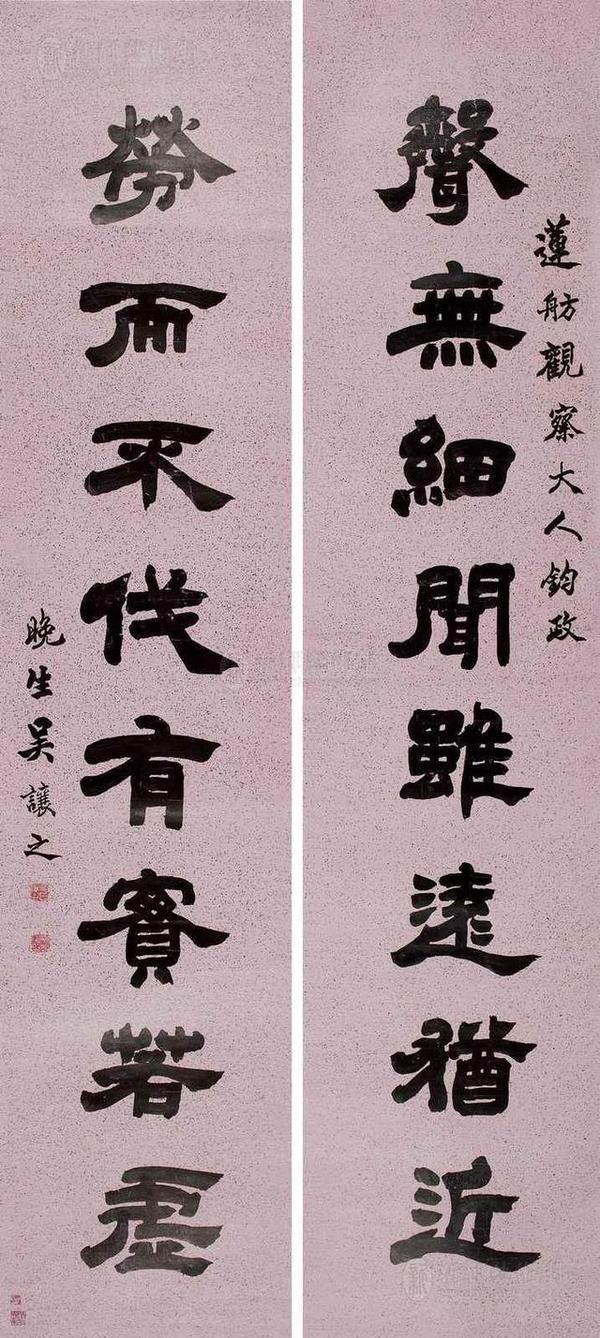 蓮舫觀察大人鈞政
聲無細聞雖遠猶近
勞而不伐有實若虛
晚生吴讓之